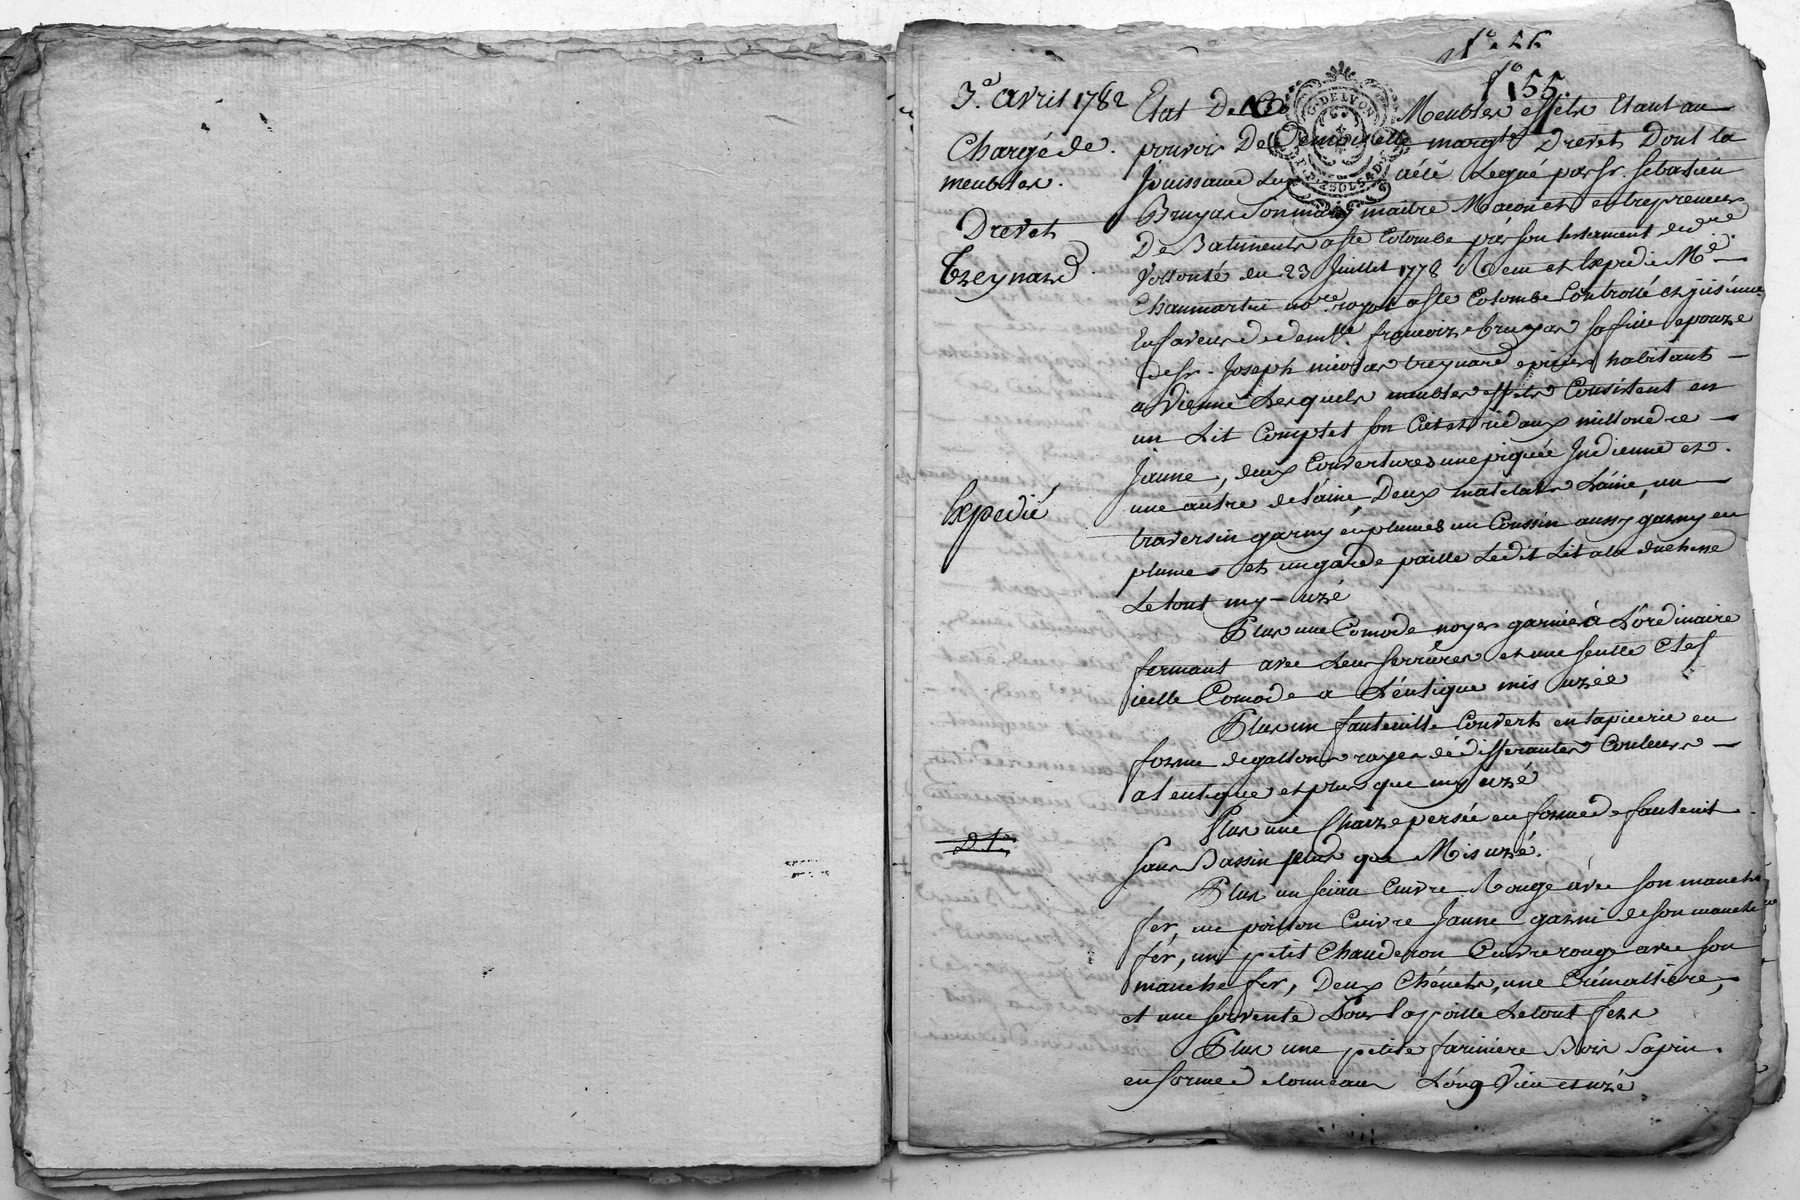 f.° 55.
3.e avril 1782
Chargé de
meubles.
Drevet
Treynard
Expedié
G. DE LYON
Etat De Meubles effets Etant au
pouvoir De Demoiselle margte Drevet Dont la
Jouissance Luy a été Legué par Sr. Sebastien
Bruyas Son mary maitre Macon et entrepreneur
De Batiments a Ste Colombe par Son testament de dre
Vollonté du 23 Juillet 1778 Receu et Expedié Me
Chaumartin nore royal a Ste Colombe Controllé et insinué
En faveur de demlle francoize bruyas Sa fille epouze
de Sr. Joseph nicolas treynard epicier habitant
a Vienne Lesquels meubles effets Consistent en
un Lit Complet Son Ciel et rideaux millondre
Jaune, deux Couvertures une piquée Indienne et
une autre de Laine Deux matelats Laine, un
traversin garny en plumes un Coussin aussy garny en
plumes et un garde paille Ledit Lit a la duchesse
Le tout my-uzé
Plus une Comode noyer garnie à L'ordinaire
fermant avec Leur Serrures et une Seulle Clef
icelle Comode a L'entique mis uzée
Plus un fauteuille Couvert en tapicerie en
forme de gallons rayes de differantes Couleurs
a l'entique et plus que my uzé
Plus une Chaize persée en forme de fauteuil
Sans Bassin plus que Mis uzé.
Plus un Seiau Cuivre Rouge avec Son manche
fer, un poillon Cuivre Jaune garni de Son manche
fer, un petit Chauderon Cuivre rouge avec Son
manche fer, Deux Chénets, une Crémalliere,
et une Servente Pour la poille Le tout fer
Plus une petite fariniere Bois Sapin
en forme de tonneau Long Vieu et uzé